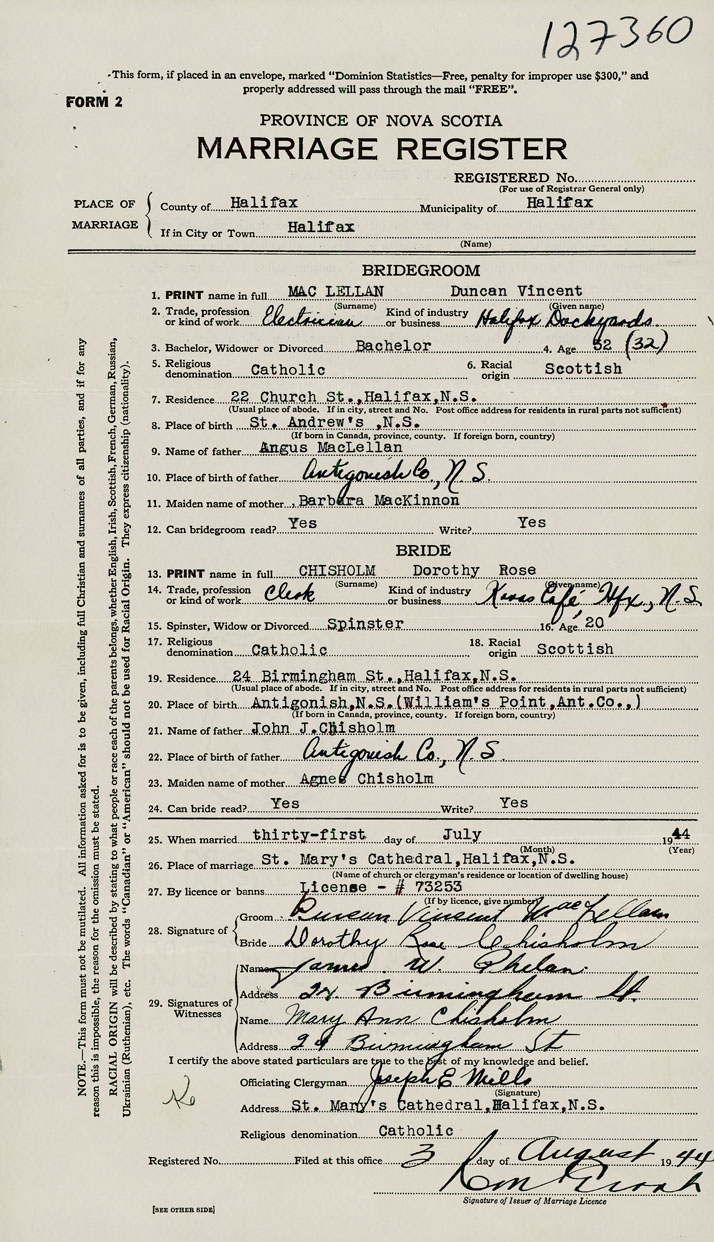 127360
This form, if placed in an envelope, marked "Dominion Statistics—Free, penalty for improper use $300," and
properly addressed will pass through the mail "FREE".
FORM 2
PROVINCE OF NOVA SCOTIA
MARRIAGE REGISTER
REGISTERED No.
(For use of Registrar General only)
PLACE OF MARRIAGE
County of Halifax Municipality of Halifax
If in City or Town Halifax
(Name)
BRIDEGROOM
1. PRINT name in full MAC LELLAN Duncan Vincent
(Surname) (Given name)
2. Trade, profession or kind of work Electrician Kind of industry or business Halifax Dockyards.
3. Bachelor, Widower or Divorced Bachelor 4. Age 32 (32)
5. Religious denomination Catholic 6. Racial origin Scottish
7. Residence 22 Church St., Halifax, N.S.
(Usual place of abode. If in city, street and No. Post office address for residents in rural parts not sufficient)
8. Place of birth St. Andrew's ,N.S.
(If born in Canada, province, county. If foreign born, country)
9. Name of father Angus MacLellan
10. Place of birth of father Antigonish Co., N.S.
11. Maiden name of mother Barbara MacKinnon
12. Can bridegroom read? Yes Write? Yes
BRIDE
13. PRINT name in full CHISHOLM Dorothy Rose
(Surname) (Given name)
14. Trade, profession or kind of work Clerk Kind of industry or business Café, Hfx., N.S.
15. Spinster, Widow or Divorced Spinster 16. Age 20
17. Religious denomination Catholic 18. Racial origin Scottish
19. Residence 24 Birmingham St., Halifax, N.S.
(Usual place of abode. If in city, street and No. Post office address for residents in rural parts not sufficient)
20. Place of birth Antigonish, N.S.(William's Point, Ant.Co.,)
(If born in Canada, province, county. If foreign born, country)
21. Name of father John J. Chisholm
22. Place of birth of father Antigonish Co., N.S.
23. Maiden name of mother Agnes Chisholm
24. Can bride read? Yes Write? Yes
25. When married thirty-first day of July 1944
(Month) (Year)
26. Place of marriage St. Mary's Cathedral, Halifax, N.S.
(Name of church or clergyman's residence or location of dwelling house)
27. By licence or banns License - # 73253
(If by licence, give number)
28. Signature of
Groom Duncan Vincent MacLellan
Bride Dorothy Rose Chisholm
29. Signatures of Witnesses
Name James W. Phelan.
Address 24 Birmingham St.
Name Mary Ann Chisholm
Address 24 Birmingham St
I certify the above stated particulars are true to the best of my knowledge and belief.
Officiating Clergyman Joseph E Mills
(Signature)
Address St. Mary's Cathedral, Halifax, N.S.
Religious denomination Catholic
Registered No. Filed at this office 3 day of August 1944
Signature of Issuer of Marriage Licence
[SEE OTHER SIDE]
NOTE.—This form must not be mutilated. All information asked for is to be given, including full Christian and surnames of all parties, and if for any
reason this is impossible, the reason for the omission must be stated.
RACIAL ORIGIN will be described by stating to what people or race each of the parents belongs, whether English, Irish, Scottish, French, German, Russian,
Ukrainian (Ruthenian), etc. The words "Canadian" or "American" should not be used for Racial Origin. They express citizenship (nationality).